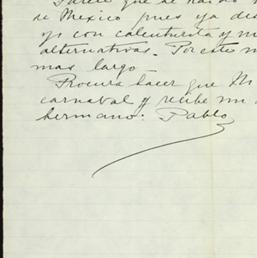 que se
de Mexico pues ya des
yo con calenturita y m
alternativas. Por esto no
mas largo—
Procura hacer que Mi
carnaval y recibe mi
hermano: Pablo